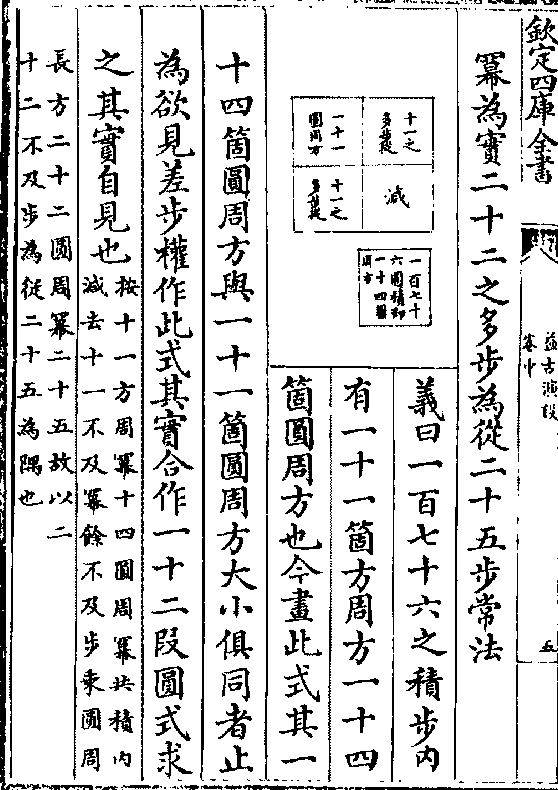 欽定四庫全書
益古演段
卷中
五
冪為實二十二之多步為從二十五步常法
十一之
多步從
一十一
圓周方
減
十一之
多步從
一百七十
六圓積即
一十四圓
周方
義曰一百七十六之積步內
有一十一箇方周方一十四
箇圓周方也今畫此式其一
十四箇圓周方與一十一箇圓周方大小俱同者止
為欲見差步權作此式其實合作一十二段圓式求
之其實自見也
按十一方周冪十四圓周冪共積內
減去十一不及冪餘不及步乘圓周
長方二十二圓周冪二十五故以二
十二不及步為從二十五為隅也